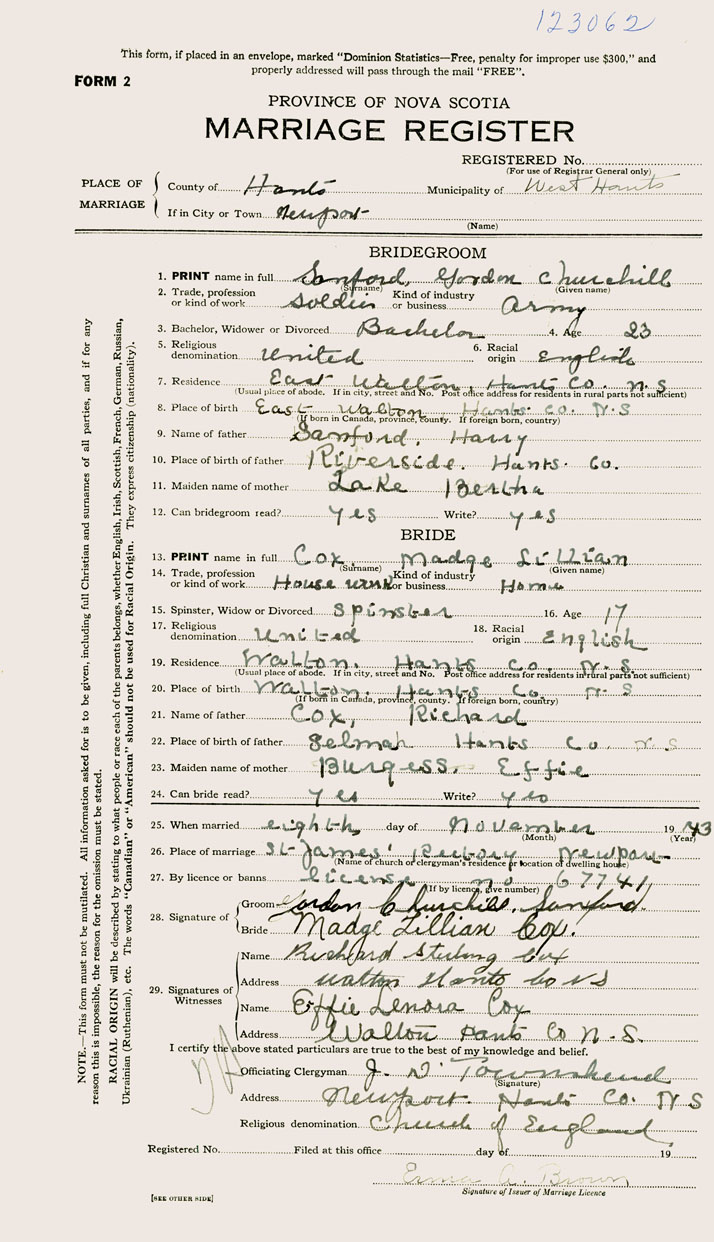 123062
This form, if placed in an envelope, marked “Dominion Statistics—Free, penalty for improper use $300,” and
properly addressed will pass through the mail “FREE”.
FORM 2
PROVINCE OF NOVA SCOTIA
MARRIAGE REGISTER
REGISTERED No.
(For use of Registrar General only)
PLACE OF MARRIAGE
County of Hants Municipality of West Hants
If in City or Town Newport
(Name)
BRIDEGROOM
1. PRINT name in full Sanford, Gordon Churchill
(Surname) (Given name)
2. Trade, profession or kind of work Soldier Kind of industry or business Army
3. Bachelor, Widower or Divorced Bachelor 4. Age 23
5. Religious denomination United 6. Racial origin English
7. Residence East Walton, Hants Co. N.S
(Usual place of abode. If in city, street and No. Post office address for residents in rural parts not sufficient)
8. Place of birth East Walton Hants Co. N.S
(If born in Canada, province, county. If foreign born, country)
9. Name of father Sanford, Harry
10. Place of birth of father Riverside. Hants. Co.
11. Maiden name of mother Lake Bertha
12. Can bridegroom read? yes Write? yes
BRIDE
13. PRINT name in full Cox, Madge Lillian
(Surname) (Given name)
14. Trade, profession or kind of work House work Kind of industry or business Home
15. Spinster, Widow or Divorced Spinster 16. Age 17
17. Religious denomination United 18. Racial origin English
19. Residence Walton. Hants Co. N.S.
(Usual place of abode. If in city, street and No. Post office address for residents in rural parts not sufficient)
20. Place of birth Walton. Hants Co. N S
(If born in Canada, province, county. If foreign born, country)
21. Name of father Cox, Richard
22. Place of birth of father Selmah Hants Co. N.S
23. Maiden name of mother Burgess. Effie
24. Can bride read? yes Write? yes
25. When married eighth day of November 19 43
(Month) (Year)
26. Place of marriage St James' Rectory Newport
(Name of church or clergyman's residence or location of dwelling house)
27. By licence or banns license no 67741
(If by licence, give number)
28. Signature of Groom Gordon Churchill Sanford.
Bride Madge Lillian Cox.
29. Signatures of Witnesses
Name Richard Sterling Cox
Address Walton Hants Co NS
Name Effie Lenora Cox
Address Walton Hants Co N.S.
I certify the above stated particulars are true to the best of my knowledge and belief.
Officiating Clergyman J. N. Townshend
(Signature)
Address Newport. Hants Co. N S
Religious denomination Church of England
Registered No. Filed at this office day of 19
Erma A. Brown
Signature of Issuer of Marriage Licence
[SEE OTHER SIDE]
NOTE.—This form must not be mutilated. All information asked for is to be given, including full Christian and surnames of all parties, and if for any
reason this is impossible, the reason for the omission must be stated.
RACIAL ORIGIN will be described by stating to what people or race each of the parents belongs, whether English, Irish, Scottish, French, German, Russian,
Ukrainian (Ruthenian), etc. The words “Canadian” or “American” should not be used for Racial Origin. They express citizenship (nationality).